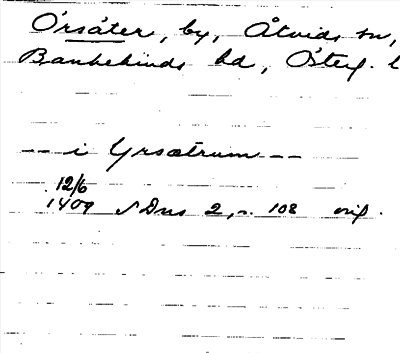 Örsåter, by, Åtvids sn,
Bankekinds hd, Österg. l
-- i Yrsætrum --
12/6
1409 SDns 2, n. 108 orig.